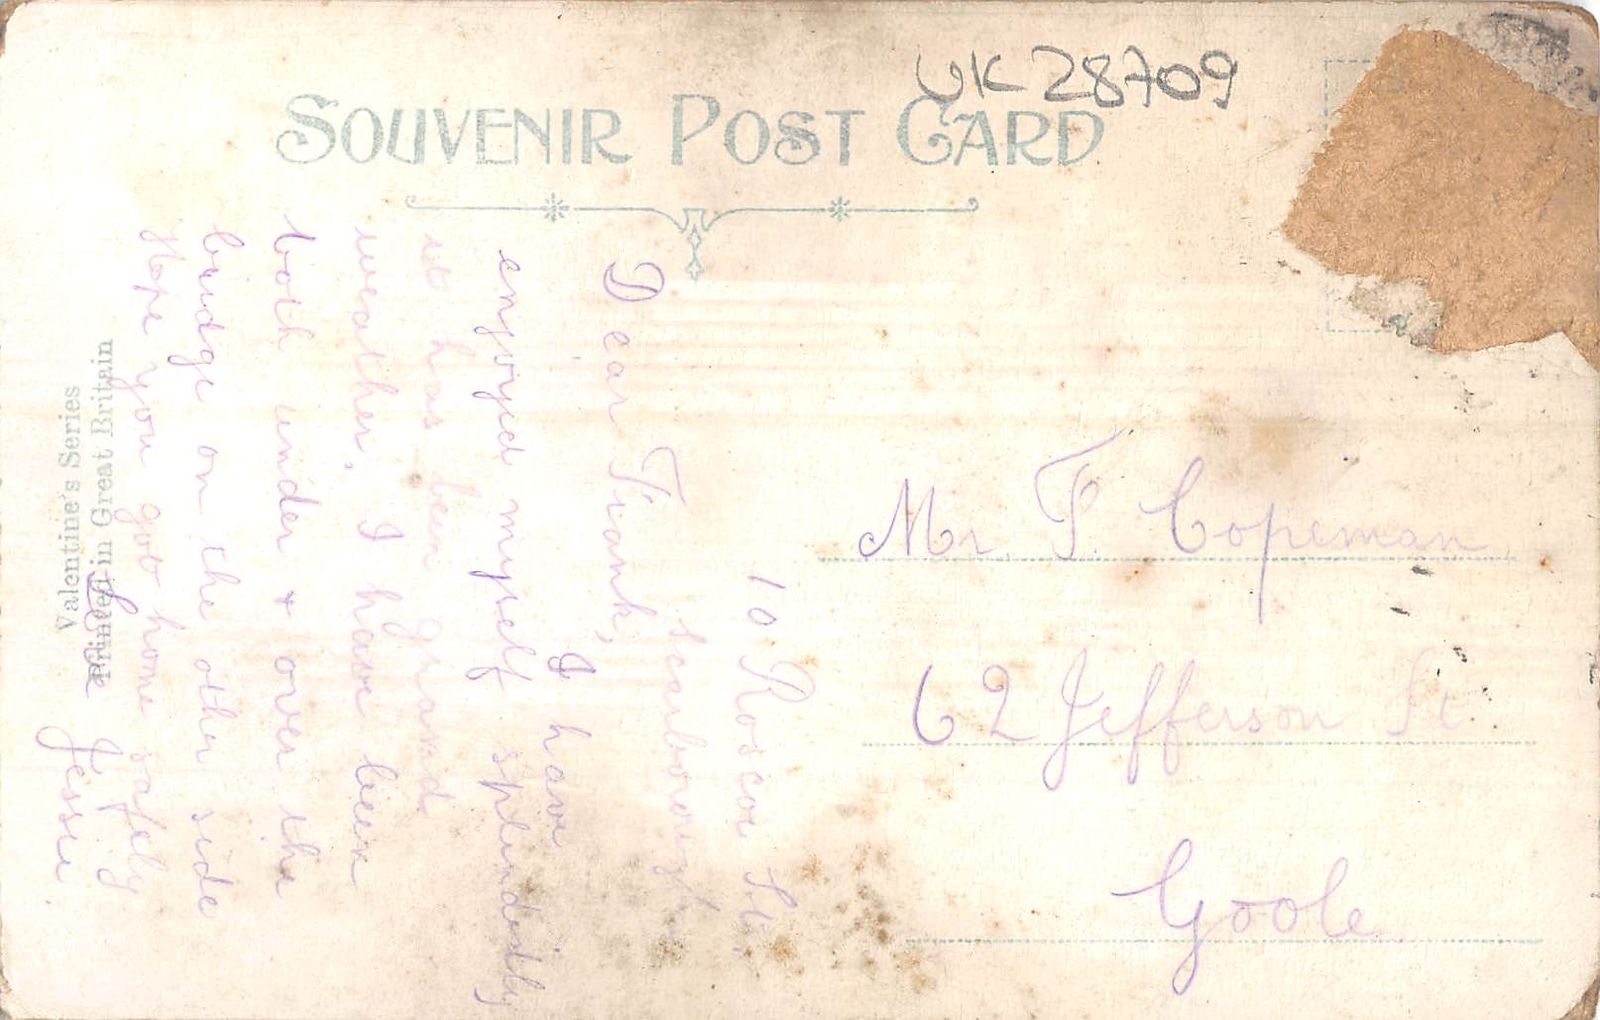 UK 28709
SOUVENIR POST CARD
10 Roscoe St.
Scarborough
Dear Frank,
I have
enjoyed myself splendidly
it has been grand
weather. I have been
both under & over the
bridge on the other side
Hope you got home safely
Love Jessie.
Valentine's Series
Printed in Great Britain
Mr. F. Copeman
62 Jefferson St.
Goole